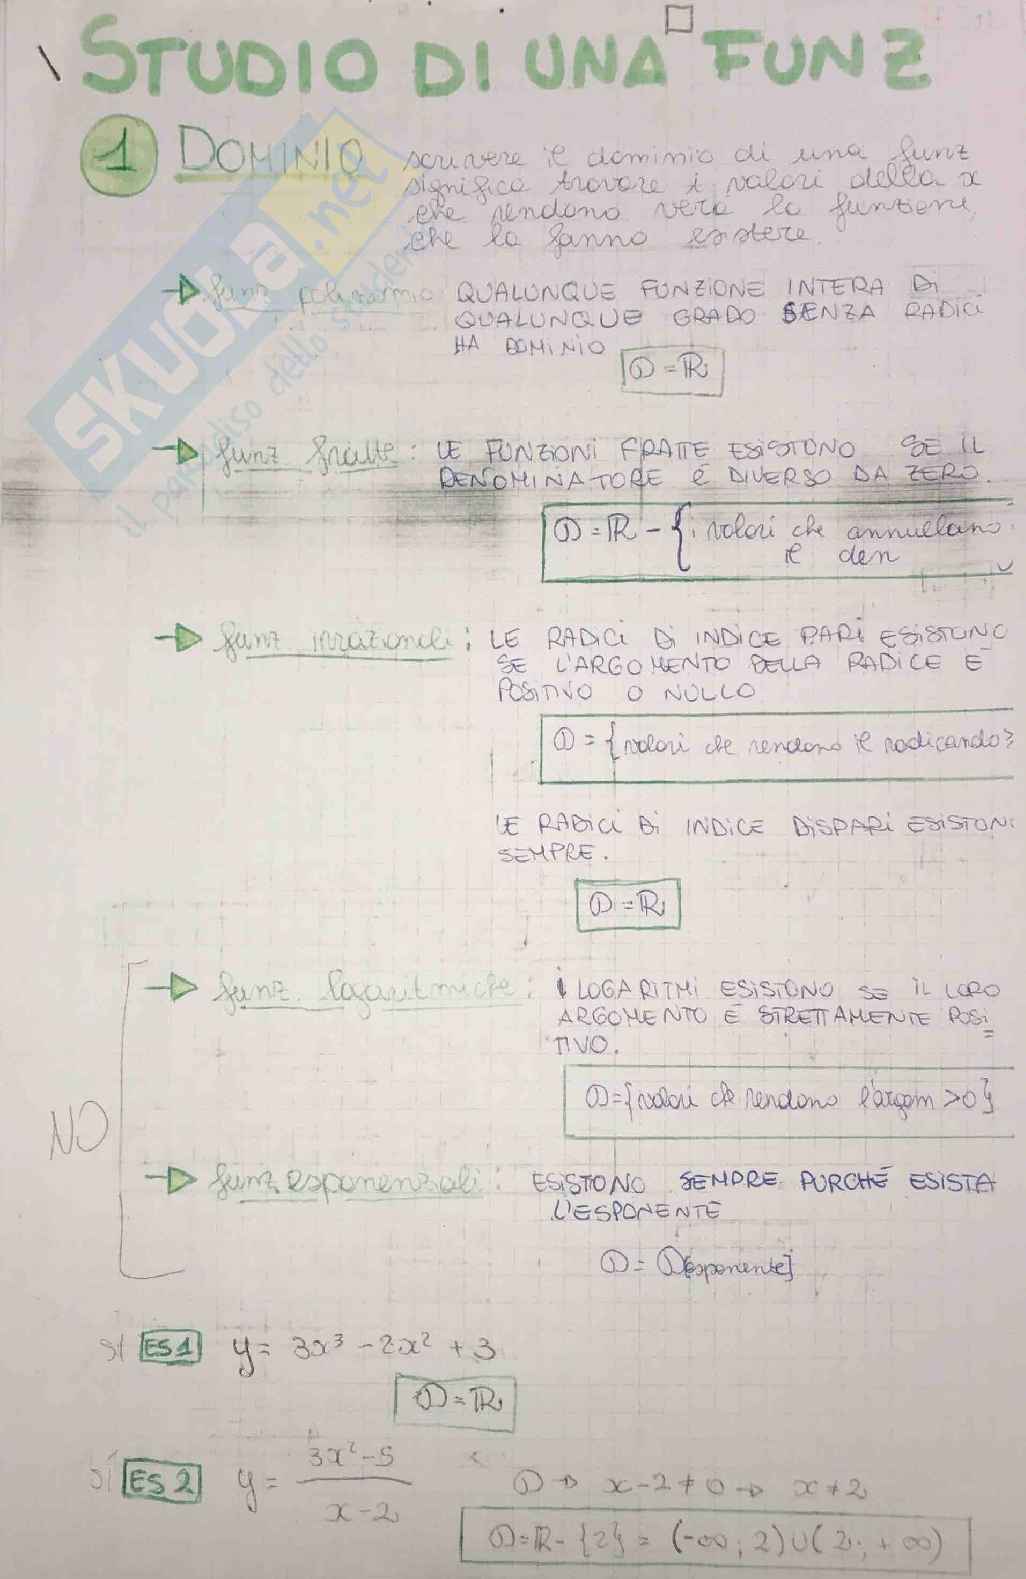 STUDIO DI UNA FUNZ
1 DOMINIO scrivere il dominio di una funz
significa trovare i valori della x
che rendono vera la funzione,
che la fanno esistere.
funz polinomio QUALUNQUE FUNZIONE INTERA DI
QUALUNQUE GRADO SENZA RADICI
HA DOMINIO
D = R
funz fratte: LE FUNZIONI FRATTE ESISTONO SE IL
DENOMINATORE È DIVERSO DA ZERO.
D = R - { i valori che annullano
il den
funz irrazionali: LE RADICI DI INDICE PARI ESISTONO
SE L'ARGOMENTO DELLA RADICE È
POSITIVO O NULLO
D = { valori che rendono il radicando ≥
LE RADICI DI INDICE DISPARI ESISTON
SEMPRE.
D = R
funz. logaritmiche: I LOGARITMI ESISTONO SE IL LORO
ARGOMENTO È STRETTAMENTE POSI=
TIVO.
D={valori che rendono l'argom >0}
NO
funz esponenziali: ESISTONO SEMPRE PURCHÉ ESISTA
L'ESPONENTE
D = D[esponente]
SÌ ES1 y = 3x³ - 2x² + 3
D = R
SÌ ES 2 y = 3x²-5
x-2
D → x-2≠0 → x≠2
D=R-{2} = (-∞; 2)∪(2; +∞)
SKUOLA.net
il paradiso dello studente